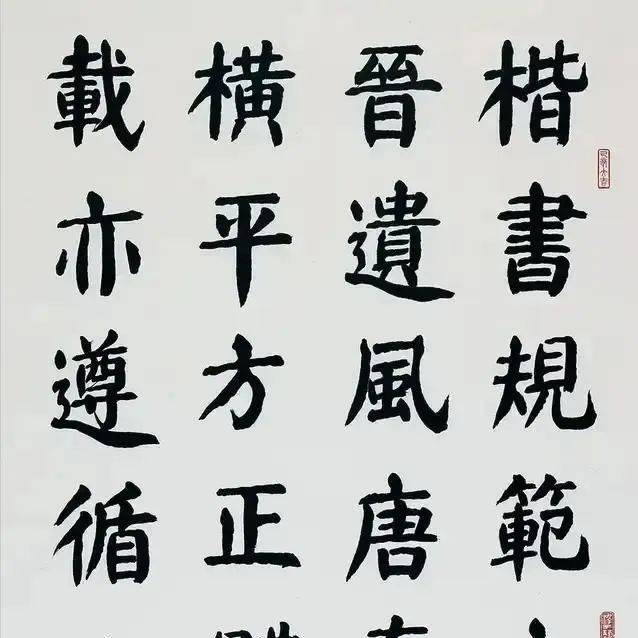 楷書規範
晉遺風唐
橫平方正
載亦遵循